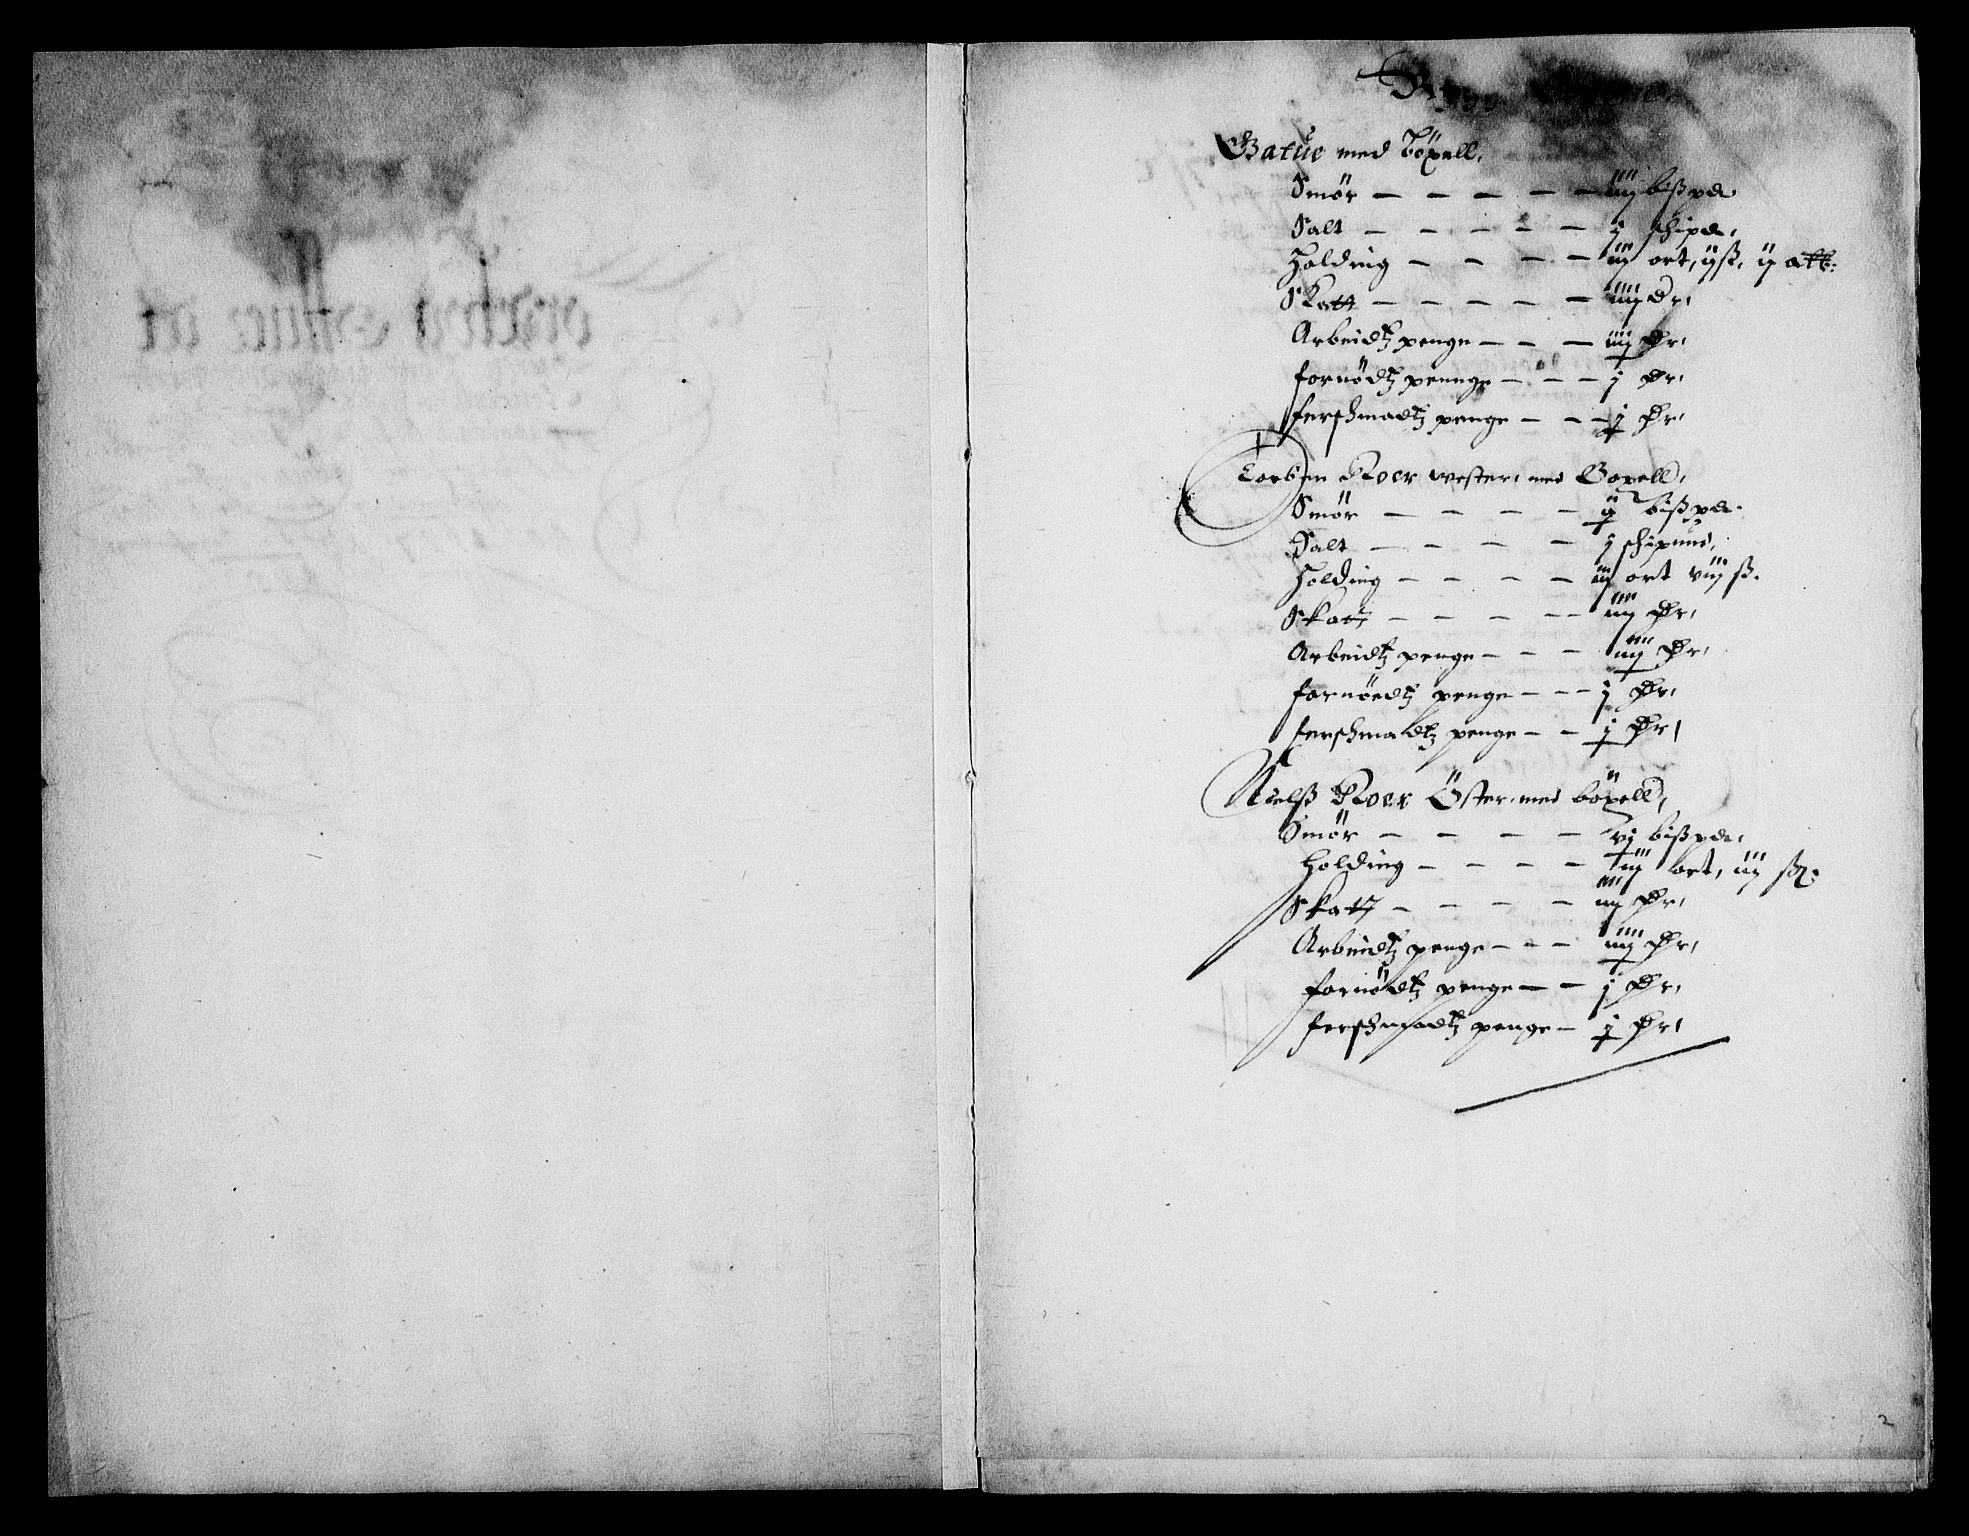 Batue med böxell,
Smör — — — — — iiij bißpd
Salt — — — — — j schipd,
Holding — — — — iij ort, ijß, ij alb:
Skatt — — — — — iiij dr,
Arbeidtz penge — — — iiij dr,
fornödtz pennge — — — j dr,
ferschmadtz penge — — — j dr,
Torben Roer wester, med Boxell,
Smör — — — — ij bißpd
Salt — — — — j schipund,
Holding — — — — iij ort viijß.
Skatt — — — — — iiij dr,
Arbeidtz penge — — — iiij dr,
fornöedtz penge — — — j dr,
ferschmadtz penge — — j dr,
Nielß Roer Öster, med böxell,
Smör — — — — vj bißpd,
Holding — — — — iij ort, iij ß:
Skatt — — — — iiij dr,
Arbeidtz penge — — — iiij dr,
fornödtz penge — — j dr,
ferschmadtz penge — j dr,
2